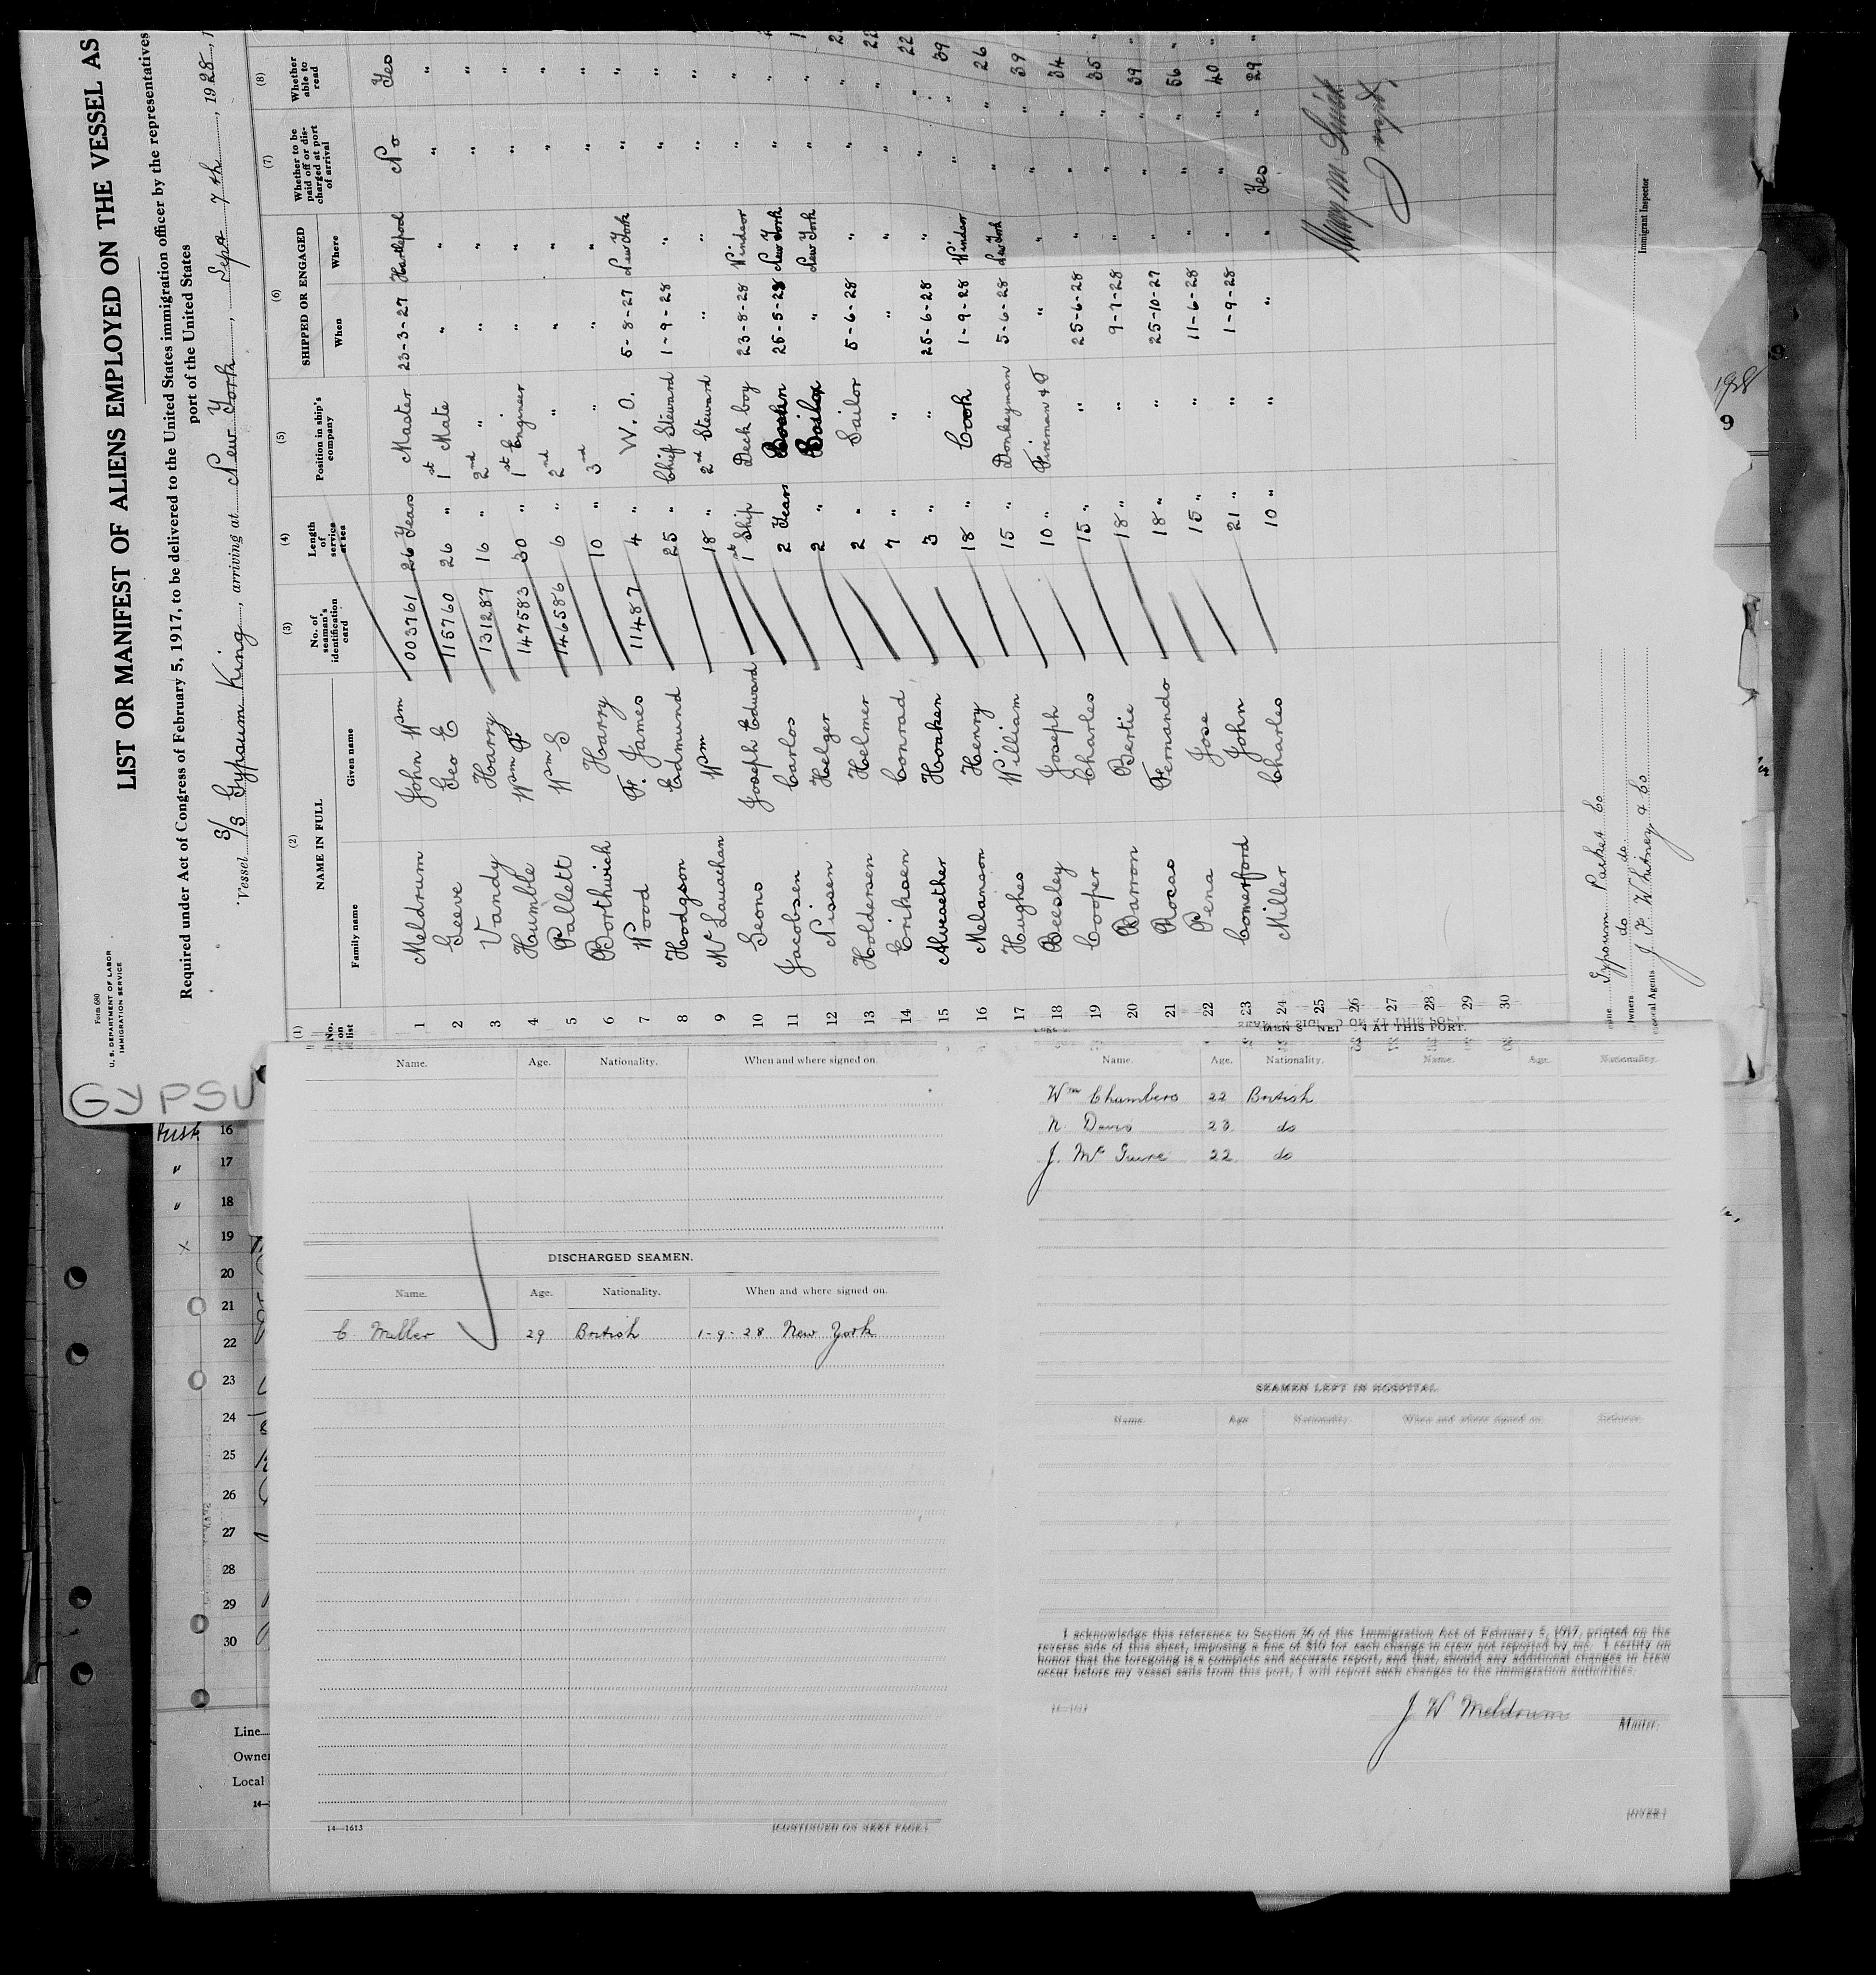 Form 680
U. S. DEPARTMENT OF LABOR
IMMIGRATION SERVICE
LIST OR MANIFEST OF ALIENS EMPLOYED ON THE VESSEL AS
Required under Act of Congress of February 5, 1917, to be delivered to the United States immigration officer by the representatives
port of the United States
Vessel S/S Gypsum King, arriving at New York, Sept 7th, 1928, 1
(1) (2) (3) (4) (5) (6) (7) (8)
No. on list NAME IN FULL No. of seaman's identification card Length of service at sea Position in ship's company SHIPPED OR ENGAGED Whether to be paid off or discharged at port of arrival Whether able to read
Family name Given name When Where
1 Meldrum John Wm 003761 26 Years Master 23-3-27 Hartlepool No Yes
2 Geeve Geo E 115760 26 " 1st Mate " " " "
3 Vandy Harry 131287 16 " 2nd " " " " "
4 Humble Wm F 147583 30 " 1st Engineer " " " "
5 Pallett Wm S 146586 6 " 2nd " " " " "
6 Borthwick Harry 10 " 3rd " " " " "
7 Wood F. James 11487 4 " W. O. 5-8-27 New York " "
8 Hodgson Edmund 25 " Chief Steward 1-9-28 " " "
9 Mc Lauachan Wm 18 " 2nd Steward " " " "
10 Seons Joseph Edward 1st Ship Deck boy 23-8-28 Windsor " "
11 Jacobsen Carlos 2 Years 25-5-28 New York " "
12 Nissen Helger 2 " " New York " "
13 Holdersen Helmer 2 " Sailor 5-6-28 " " " 22
14 Eriksen Conrad 7 " " " " " " 22
15 Alvcaether Hoaken 3 " " 25-6-28 " " " 39
16 Melanson Henry 18 " Cook 1-9-28 Windsor " " 26
17 Hughes William 15 " Donkeyman 5-6-28 New York " " 39
18 Beesley Joseph 10 " Fireman & T " " " " 34
19 Cooper Charles 15 " " 25-6-28 " " " 35
20 Barron Bertie 18 " " 9-7-28 " " " 39
21 Rocas Fernando 18 " " 25-10-27 " " " 56
22 Pena Jose 15 " " 11-6-28 " " " 40
23 Comerford John 21 " " 1-9-28 " " " 29
24 Miller Charles 10 " " " " Yes "
25
26
27
28
29
30
Gypsum Packet Co
Owners do do
J. F. Whitney & Co
Immigrant Inspector
GYPSU
1928
9
16
17
18
19
20
21
22
23
24
25
26
27
28
29
30
Line
Owne
Local
14—
Name. Age. Nationality. When and where signed on.
DISCHARGED SEAMEN.
Name. Age. Nationality. When and where signed on.
C. Miller 29 British 1-9-28 New York
14—1613
(CONTINUED ON NEXT PAGE)
AT THIS PORT.
Name. Age. Nationality. Name. Age. Nationality.
Wm Chambers 22 British
N. Davis 23 do
J. Mc Guire 22 do
SEAMEN LEFT IN HOSPITAL
Name. Age Nationality When and where signed on.
I acknowledge this reference to Section 36 of the Immigration Act of February 5, 1917, printed on the
reverse side of this sheet, imposing a fine of $10 for each change in crew not reported by me. I certify on
honor that the foregoing is a complete and accurate report, and that, should any additional changes in crew
occur before my vessel sails from this port, I will report such changes to the immigration authorities.
14—1613
J W Meldrum
Master.
(OVER)